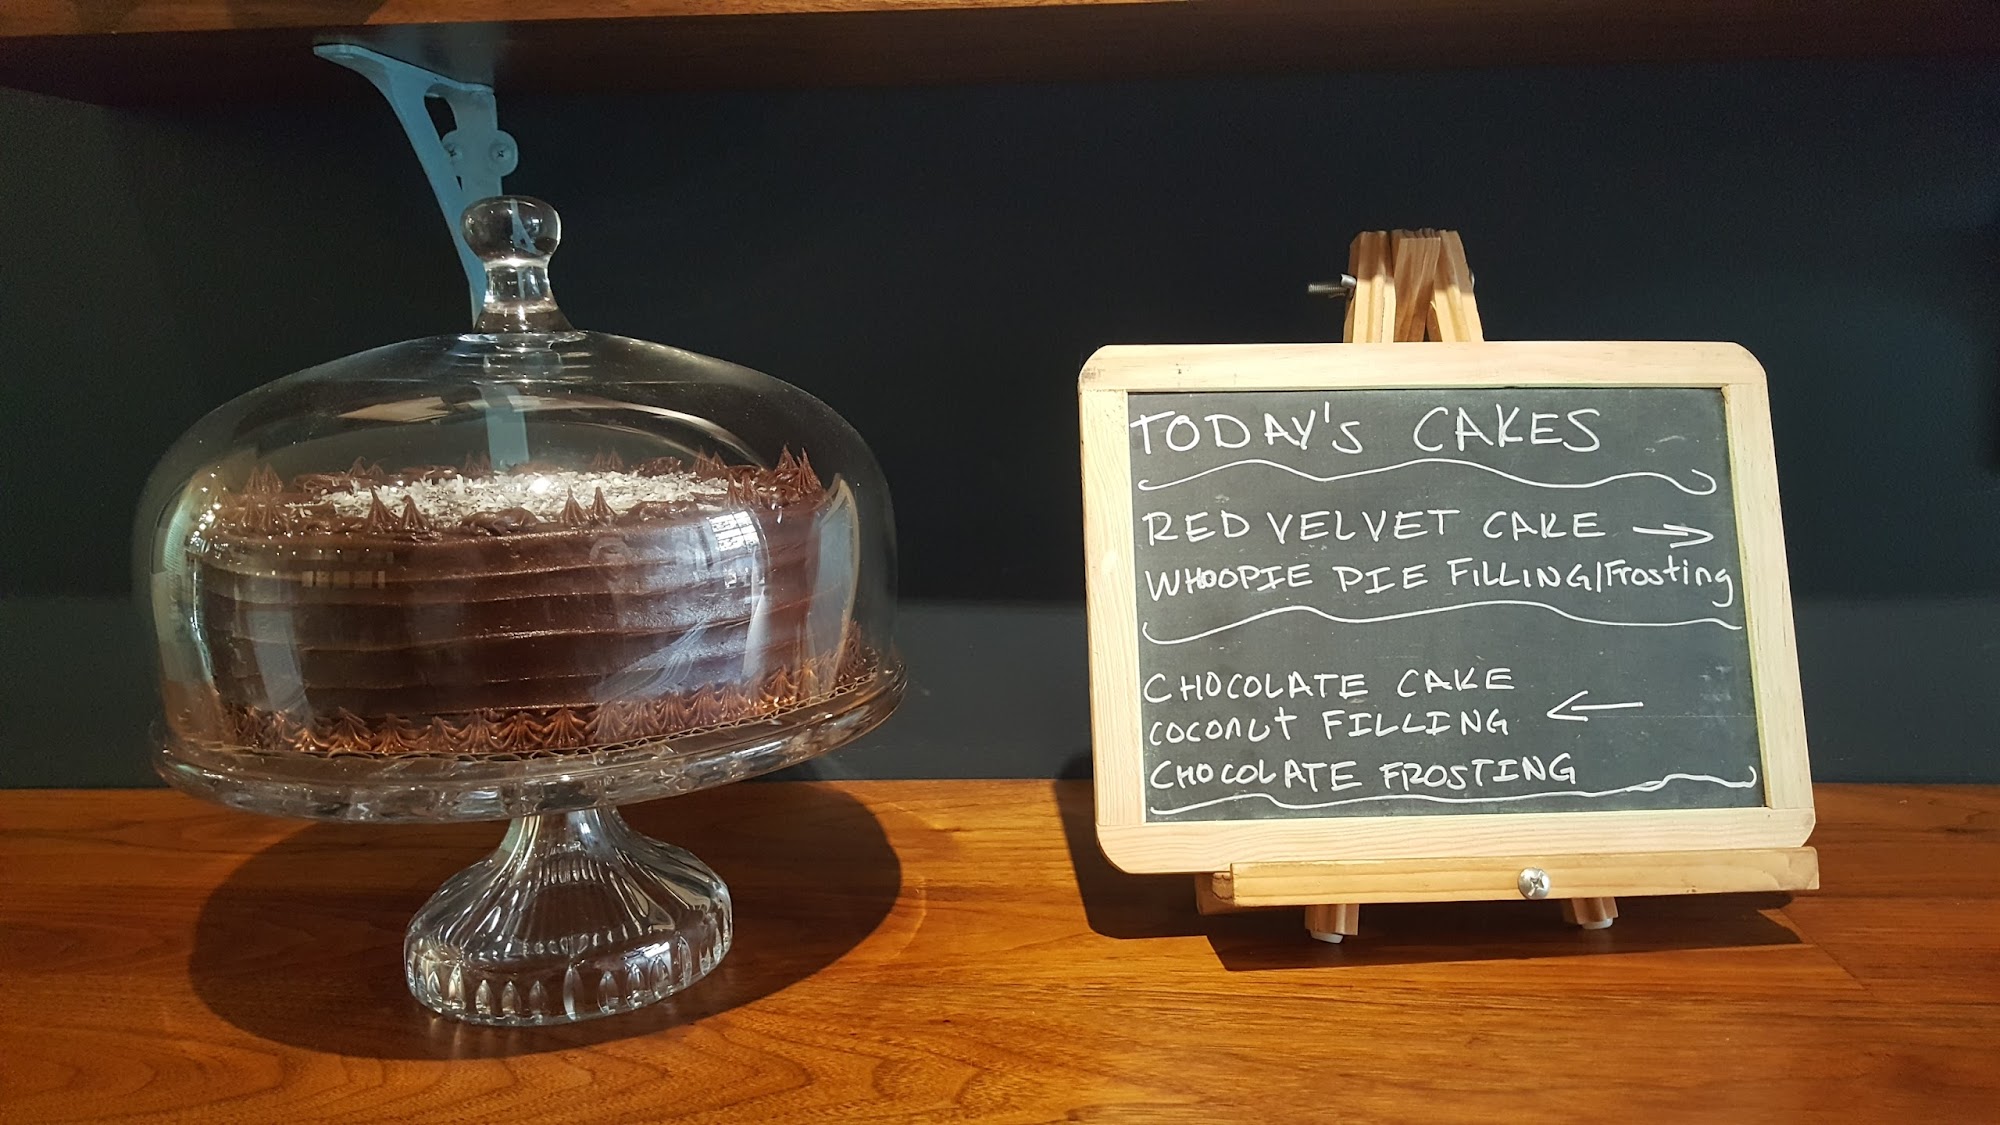 TODAY's CAKES
RED VELVET CAKE →
WHOOPIE PIE FILLING/Frosting
CHOCOLATE CAKE
COCONUT FILLING ←
CHOCOLATE FROSTING